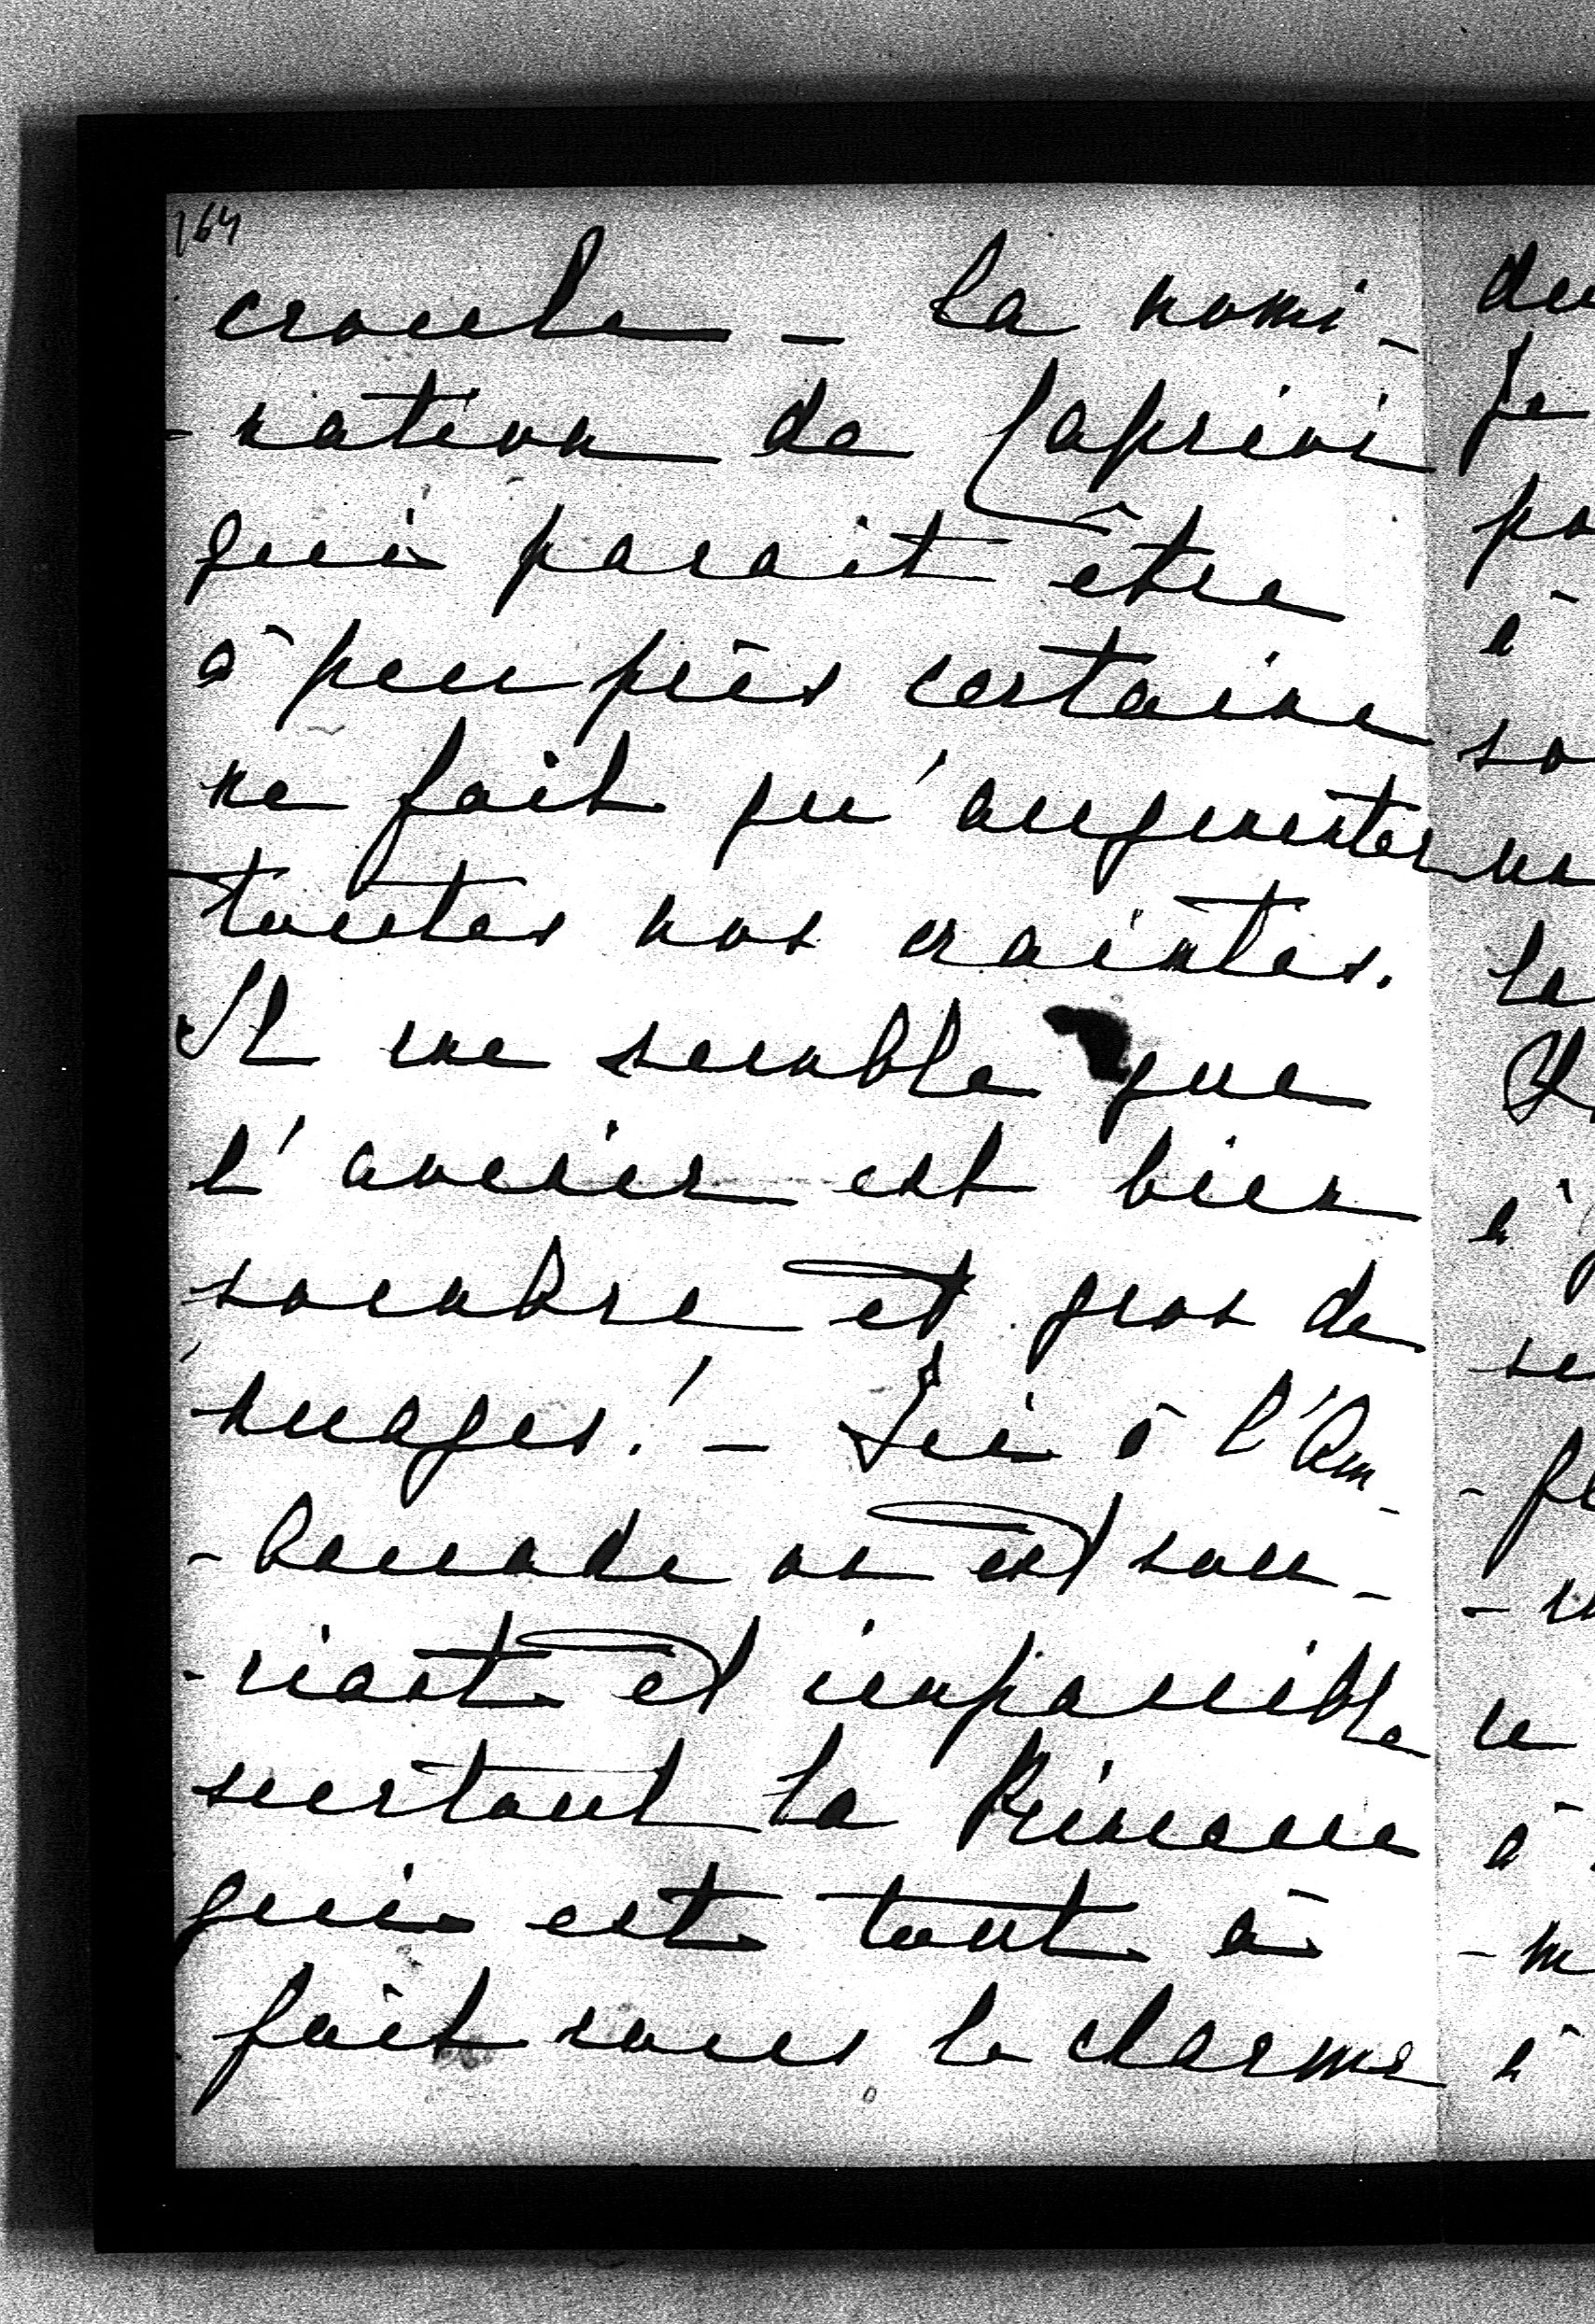 164
croule - La nomi-
-nation de Caprivi
qui parait être
à peu près certaine
ne fait qu'augmenter
toutes nos craintes.
Il me semble que
l'avenir est bien
sombre et gros de
nuages! - Ici à l'Am-
-bassade on est sou-
-riant et impassible
surtout la Princesse
qui est tout à
fait sous le charme